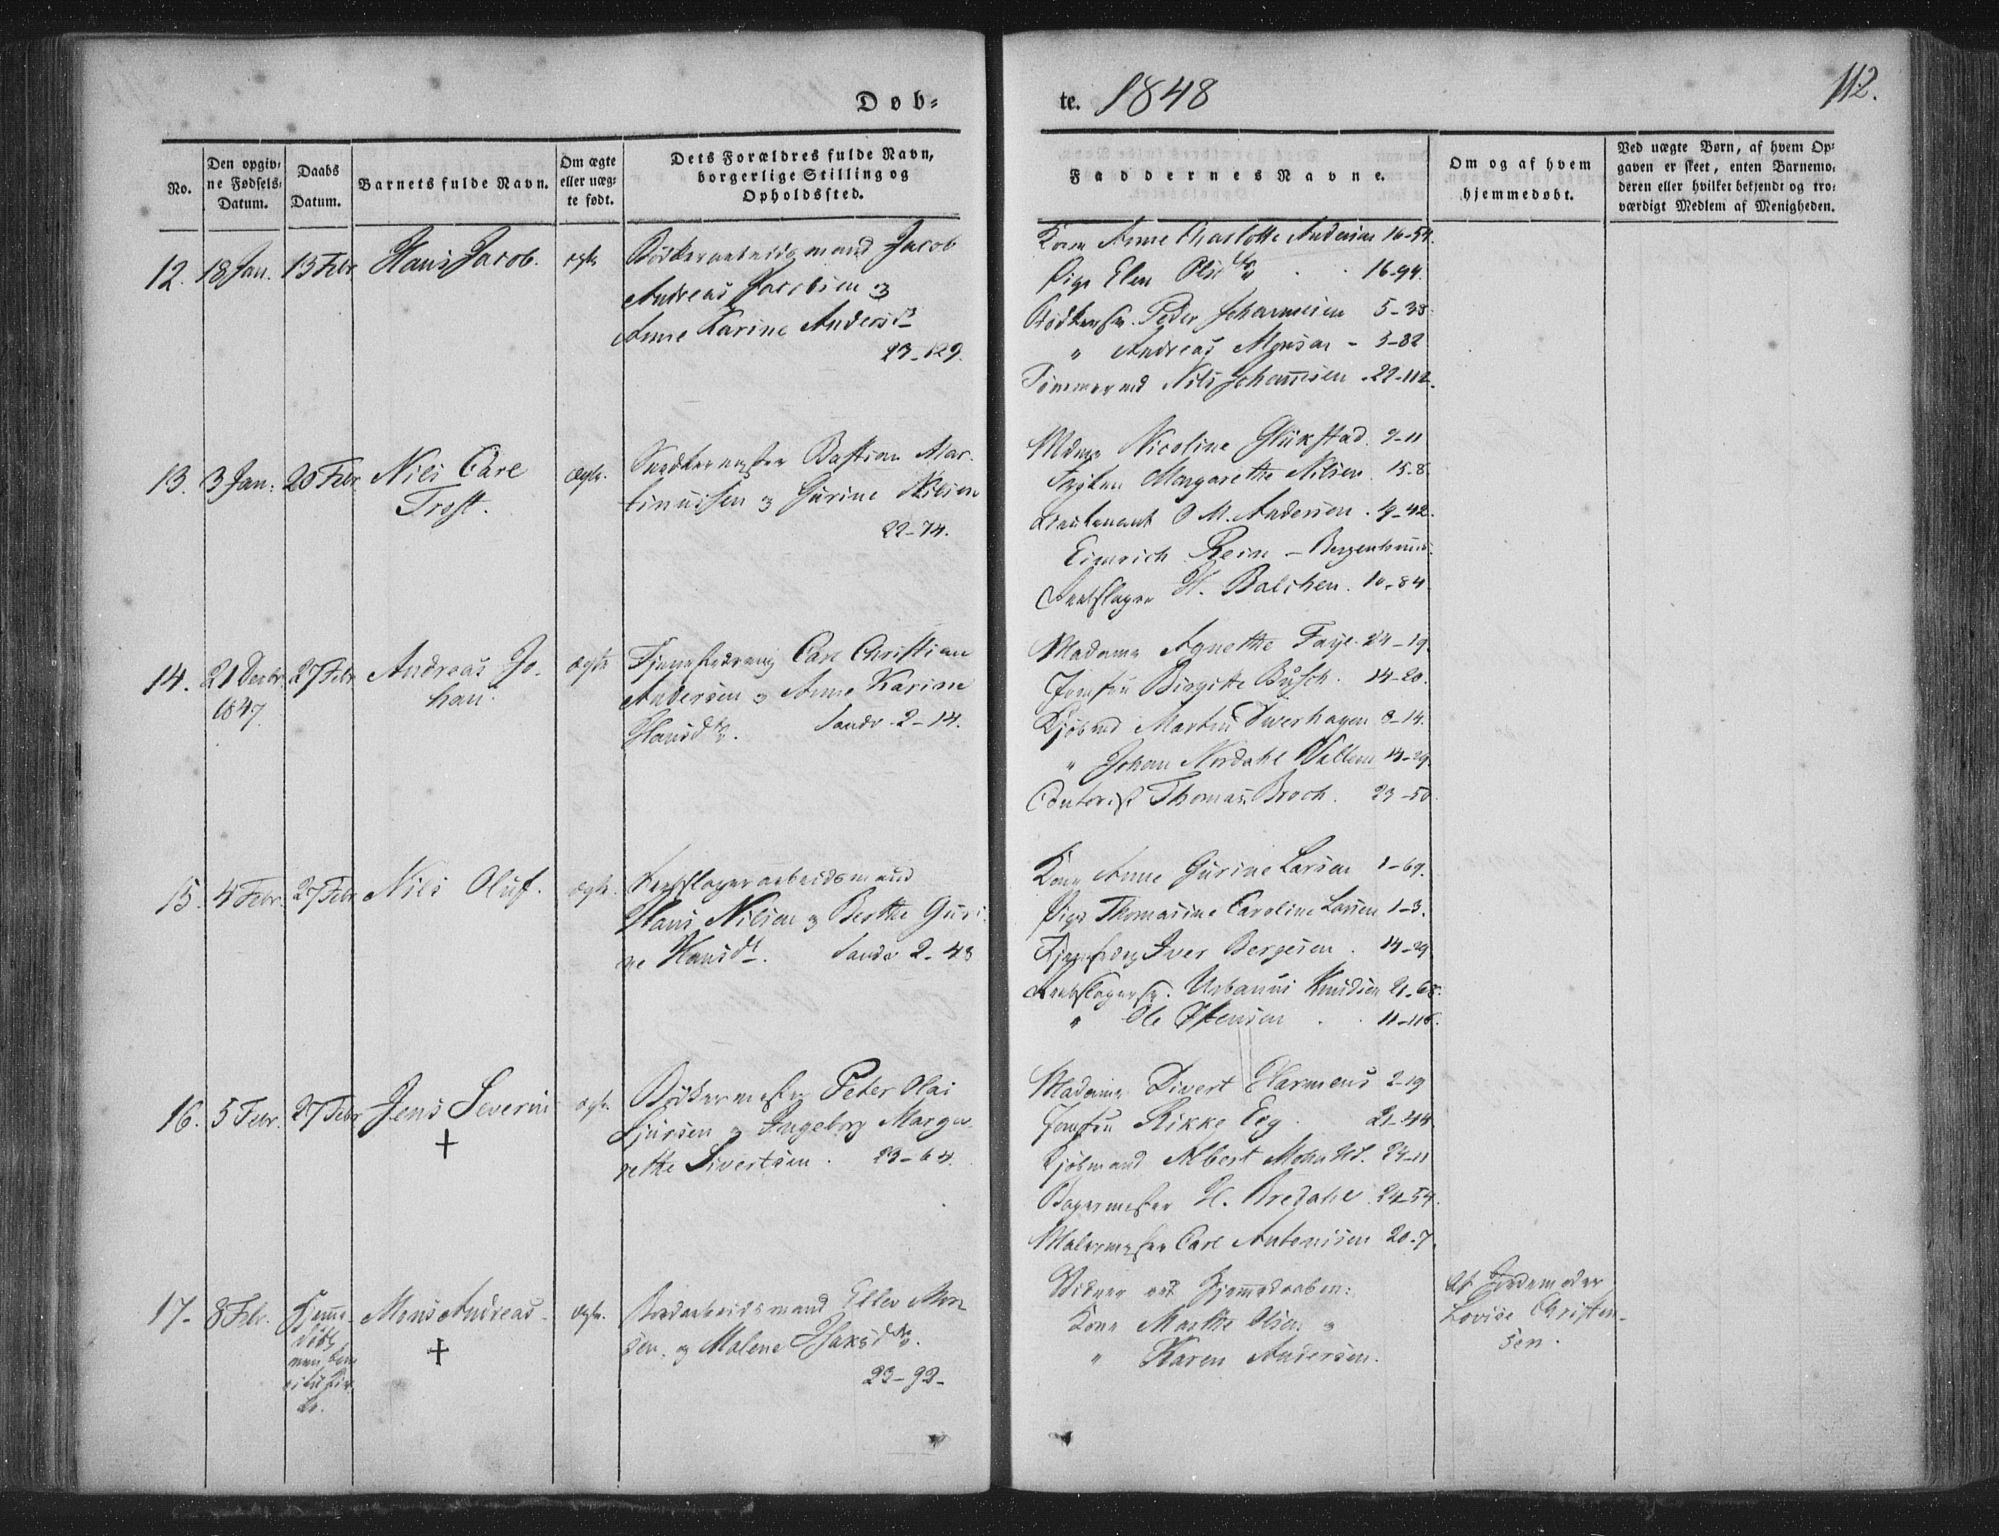 Døb=
te. 1848
112.
No.
Den opgiv=
ne Fødsels=
Datum.
Daabs
Datum.
Barnets fulde Navn.
Om ægte
eller uæg=
te født.
Dets Forældres fulde Navn,
borgerlige Stilling og
Opholdssted.
Faddernes Navne.
Om og af hvem
hjemmedøbt.
Ved uægte Børn, af hvem Op=
gaven er skeet, enten Barnemo=
deren eller hvilket bekjendt og tro=
værdigt Medlem af Menigheden.
12. 18 Jan. 13 Febr Hans Jacob. ægte Bødkerarbeidsmand Jacob
Andreas Jacobsen og
Anne Karine Andersd
23-129.
Kone Anne Charlotte Andersen 16-54.
Pige Elen Olsd 16-94.
Bødkersv. Peder Johannesen 5-38.
" Andreas Monsen - 3-82
Tømmermd Nils Johannesen . 22-112.
13. 3 Jan. 20 Febr Nils Carl
Trost.
ægte. Snedkermester Bastian Mar
tinussen og Gurine Nilsen
22-74.
Mdme Nicoline Glükstad. 9-11
Frøken Margarethe Nilsen 15-8
Lieutenant O M. Andersen . 4-42.
Reim - Bergenhuus.
Reebslager H. Balchen. 10-84
14. 21 Decbr.
1847.
27 Febr Andreas Jo-
han
ægte Tjenestedreng Carl Christian
Andersen og Anne Karine
Hansdtr. Sandv. 2-14.
Madame Agnethe Faye. 24-19.
Jomfru Birgitte Busch. 14-20.
Kjøbmd Martin 3-14.
" Johan Nordahl 14-29.
Contorist Thomas Broch. 23-50.
15. 4 Febr. 27 Febr Nils Oluf. ægte. Reebslagerarbeidsmand
Hans Nilsen og Berthe Guri-
ne Hansdt. Sandv 2-43
Kone Anne Gurine Larsen 1-69.
Pige Thomasine Caroline Larsen 1-3.
Iver Bergesen . 14-29.
Reebslagersv. Urbanus Knudsen 21-68.
" Ole Stensen 11-116.
16. 5 Febr. 27 Febr Jens Severin
+
ægte. Bødkermester Peter Olai
Sjursen og Ingeborg Marga-
rethe Sivertsen . 23-64.
Madame Sivert Harmens 2-19
Jomfru Rikke Eeg . 21-44
Kjøbmand Albert 23-11
Bagermester H. Bredahl 24-54.
Malermester Carl Antonisen 20-7.
17- 8 Febr. Hjemme-
døbt
Mons Andreas
+
ægte. Bordarbeidsmand Eller Mon
sen. og Malene Isaksdtr.
23-92-
Vidner ved Hjemmedaaben:
Kone Marthe Olsen og
" Karen Andersen.
af Jordemoder
Lovise Christen-
sen.